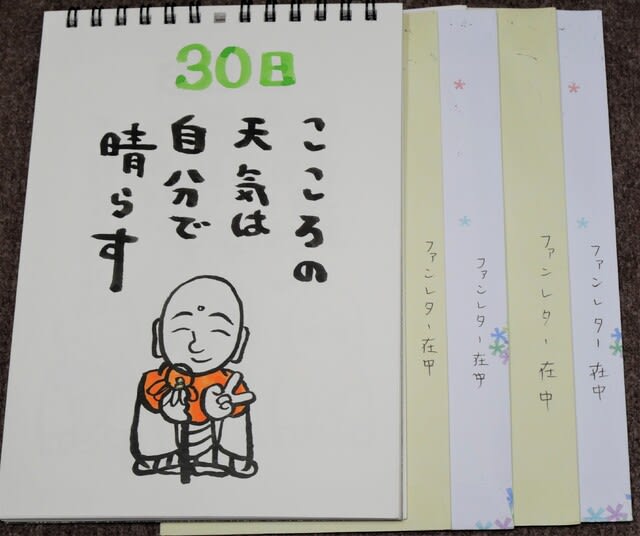 30日
こころの
天気は
自分で
晴らす
ファンレター在中
ファンレター在中
ファンレター在中
ファンレター在中